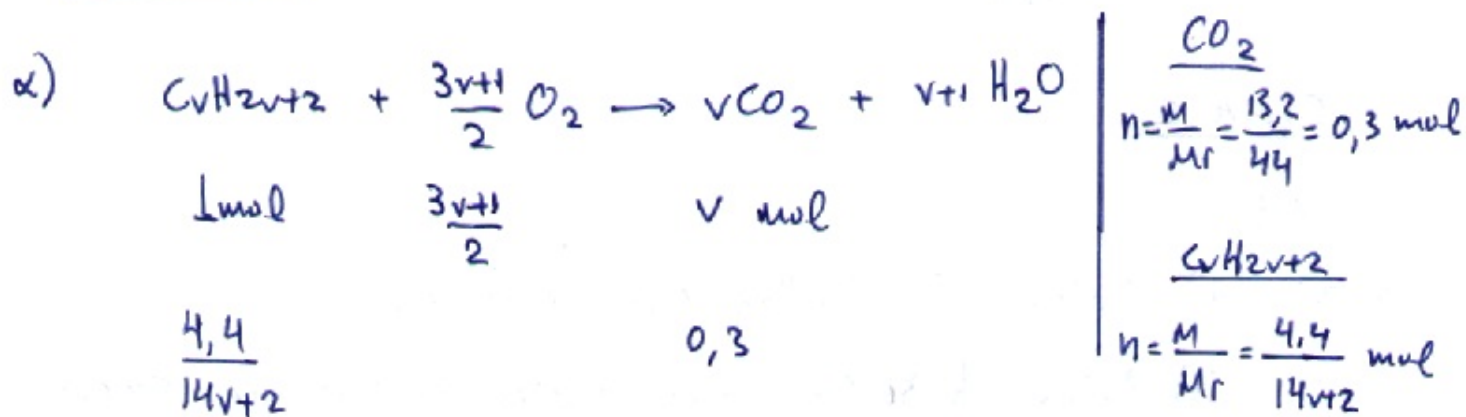 α) CνH2ν+2 + 3ν+1/2 O2 → νCO2 + ν+1 H2O
1mol 3ν+1/2 ν mol
4,4/14ν+2 0,3
CO2
n=m/Mr=13,2/44=0,3 mol
CνH2ν+2
n=m/Mr=4,4/14ν+2 mol